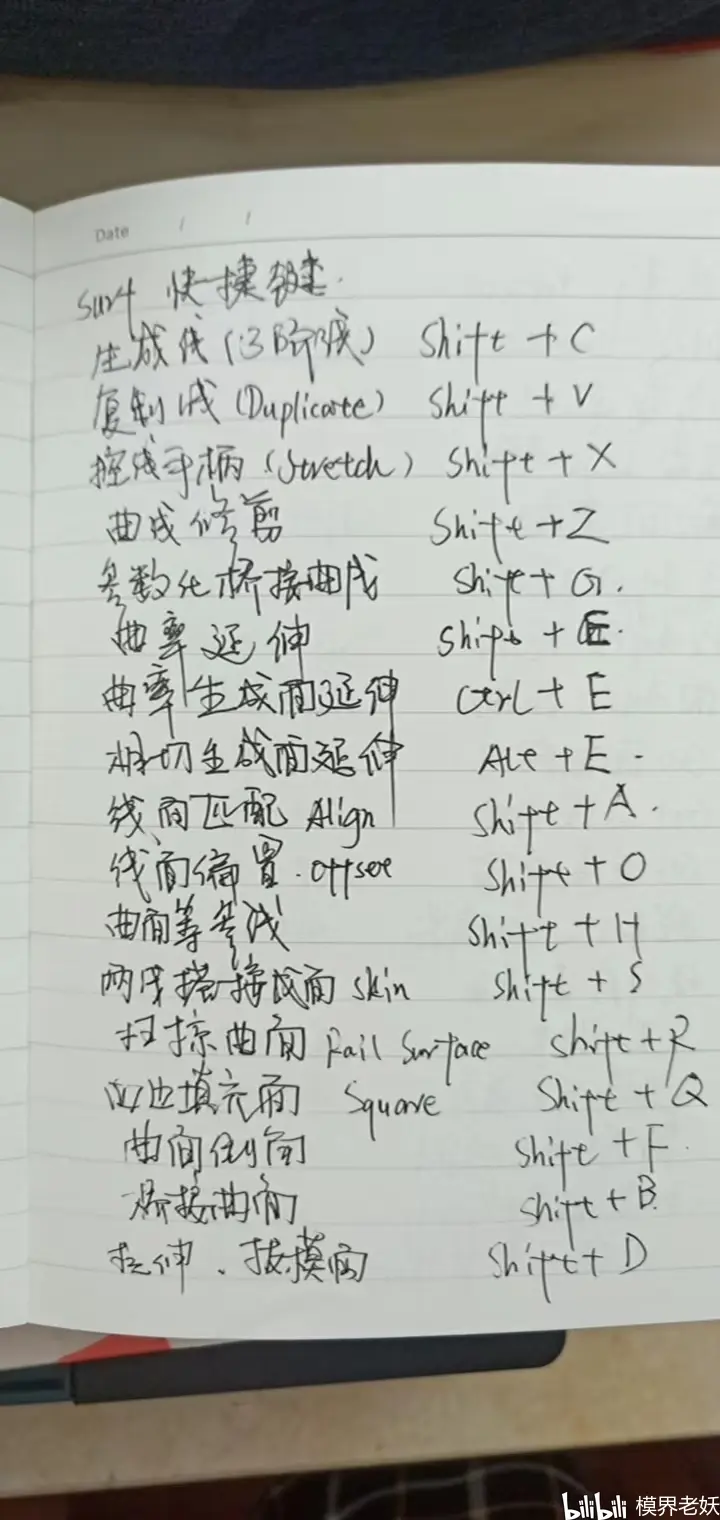 Date / /
surf 快捷键.
生成线(3阶线) Shift + C
复制线(Duplicate) Shift + V
控线手柄(Stretch) Shift + X
曲线修剪 Shift + Z
参数化桥接曲线 Shift + G.
曲率延伸 Shift + E.
曲率生成面延伸 Ctrl + E
相切生成面延伸 Alt + E.
线、面匹配 Align Shift + A.
线面偏置. offset Shift + O
曲面等参线 Shift + H
两条搭接成面 skin Shift + S
扫掠曲面 Rail Surface Shift + R
四边填充面 Square Shift + Q
曲面倒角 Shift + F.
桥接曲面 Shift + B.
拉伸、拔模面 Shift + D
bilibili 模界老妖